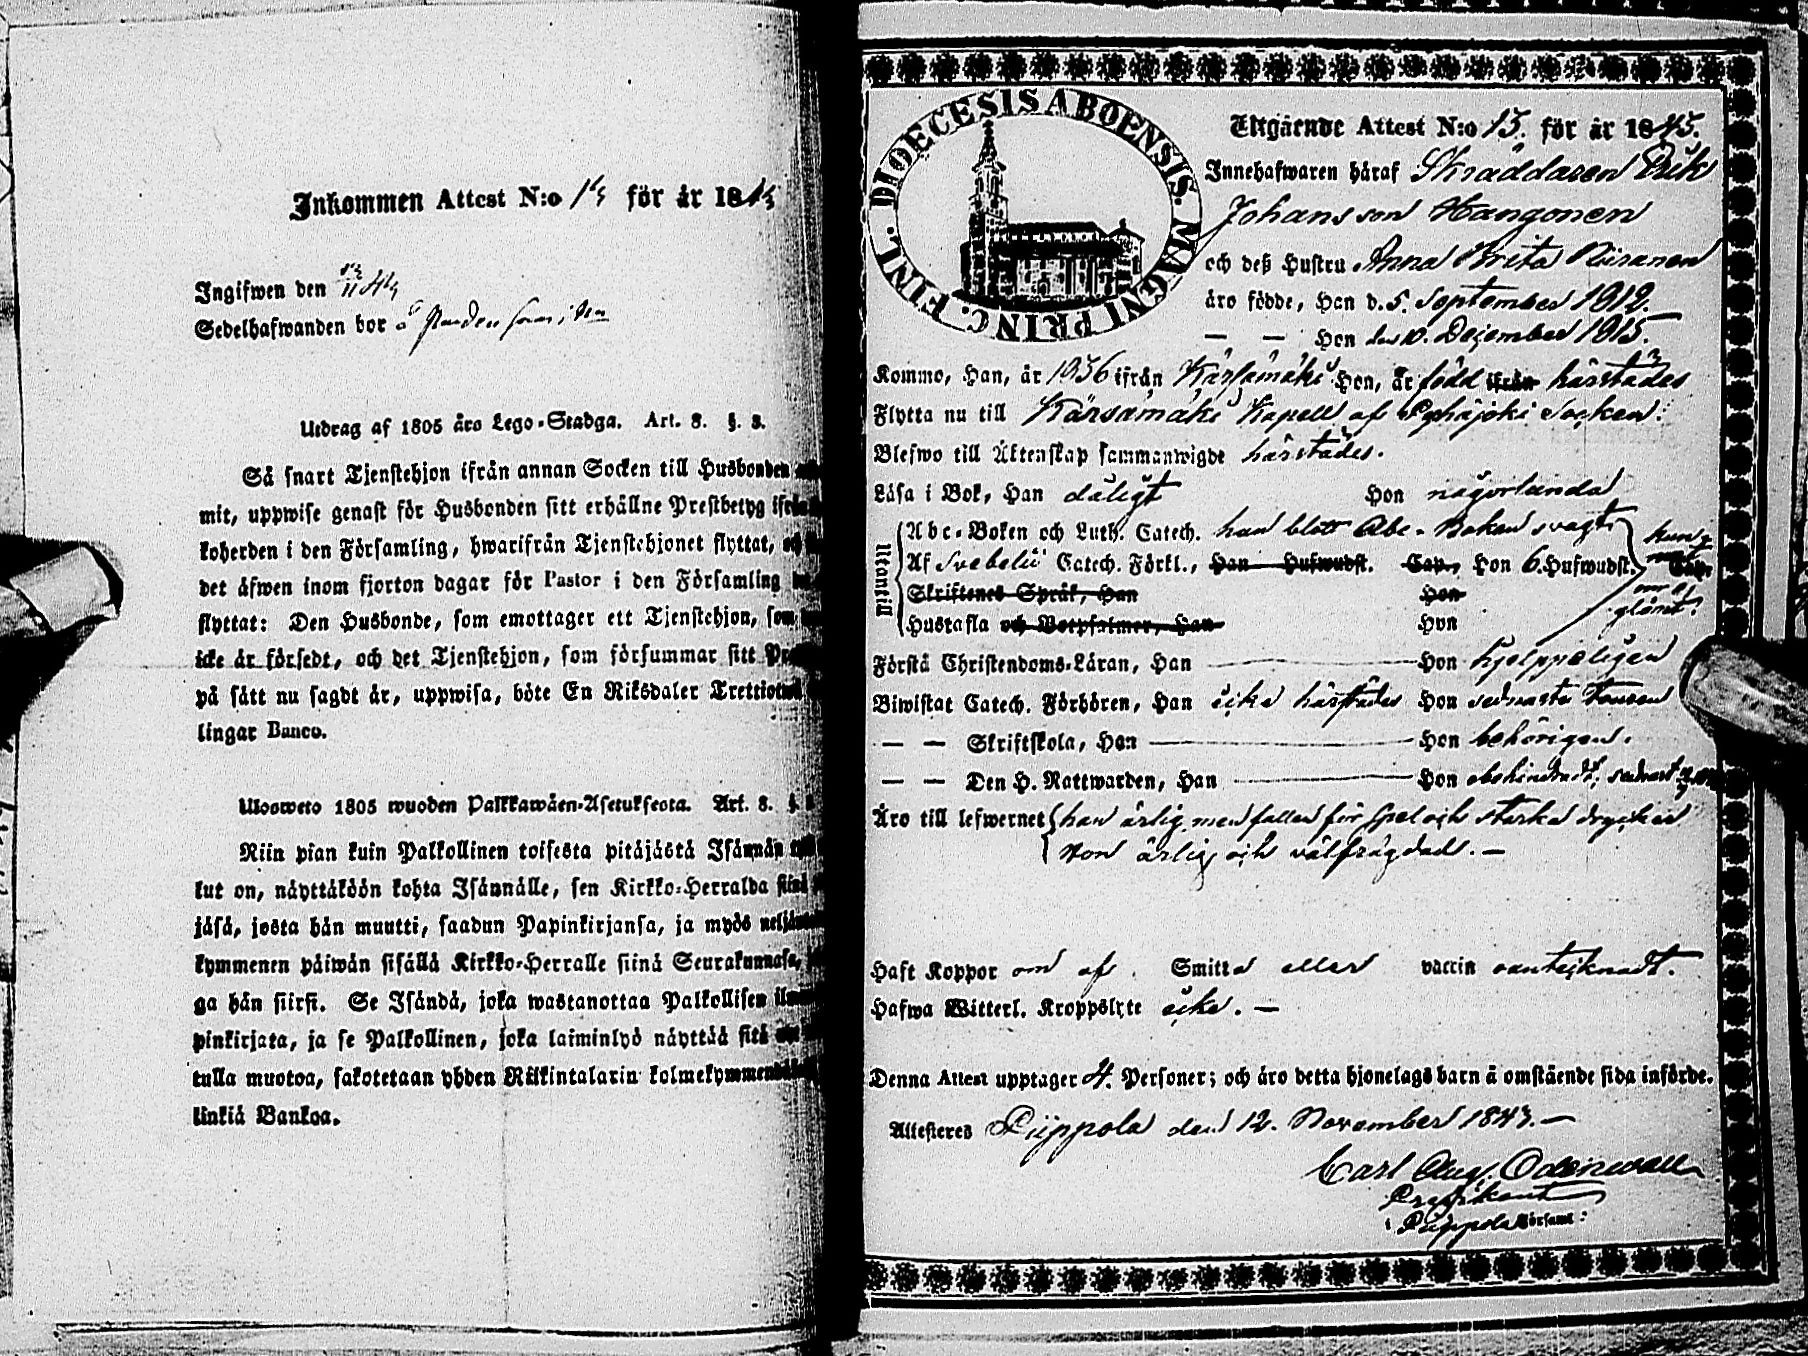 Inkommen Attest N:o för år 18
Ingifwen den
Sedelhafwanden bor å
Utdrag af 1805 års Lego-Stadga. Art. 8. §. 3.
Så snart Tjenstehjon ifrån annan Socken till Husbonden
mit, uppwise genast för Husbonden sitt erhållne Prestbetyg ifrån
koherden i den Församling, hwarifrån Tjenstehjonet flyttat,
det äfwen inom fjorton dagar för Pastor i den Församling
flyttat: Den Husbonde, som emottager ett Tjenstehjon, som
icke är försedt, och det Tjenstehjon, som försummar sitt
på sätt nu sagdt är, uppwisa, böte En Riksdaler Trettiotwå
lingar Banco.
Ulosweto 1805 wuoden Palkkawäen-Asetuksesta. Art. 8. §.
Niin pian kuin Palkollinen toisesta pitäjästä Isännän
lut on, näyttäköön kohta Isännälle, sen Kirkko-Herralda siinä
jäsä, josta hän muutti, saadun Papinkirjansa, ja myös neljän
kymmenen päiwän sisällä Kirkko-Herralle siinä Seurakunnasa,
ga hän siirsi. Se Isändä, joka wastanottaa Palkollisen
pinkirjata, ja se Palkollinen, joka laiminlyö näyttää sitä
tulla muotoa, sakotetaan yhden Riikintalarin kolmekymmendä
linkiä Bankoa.
DIOECESIS ABOENSIS. MAGNI PRINC. FINL.
Utgående Attest N:o 13. för år 1843.
Innehafwaren häraf Skräddaren Erik
Johansson Kangonen
och deß Hustru Anna Brita Piiranen
äro födde, Han d. 5. September 1812.
— — Hon den 10. December 1815.
Kommo, Han, år 1836 ifrån Kärsämäki Hon, är född ifrån härstädes
Flytta nu till Kärsämäki Kapell af Pyhäjoki Socken.
Blefwo till Äktenskap sammanwigde härstädes.
Läsa i Bok, Han dåligt Hon någorlunda
Utantill
Abc-Boken och Luth. Catech. han blott Abc-Boken svagt
Af Svebelii Catech. Förkl., Han Hufwudst. Cap., Hon 6. Hufwudst. Cap.
Skriftenes Språk, Han Hon
Hustafla och Botpsalmer, Han Hon glömt.
Förstå Christendoms-Läran, Han — Hon hjelppeligen
Biwistat Catech. Förhören, Han icke härstädes Hon sednaste
— — Skriftskola, Han — Hon behörigen.
— — Den H. Nattwarden, Han — Hon obehindradt,
Äro till lefwernet han ärlig men fallen för spel och starka drycker
Hon ärlig och välfrägdad. —
Haft Koppor om af Smitta eller vaccin oantecknadt.
Hafwa Witterl. Kroppslyte icke. —
Denna Attest upptager 4. Personer; och äro detta hjonelags barn å omstående sida införde.
Attesteras Piippola den 12. November 1843. —
Carl Aug. Odenwall
Predikant
i Piippola Församl: